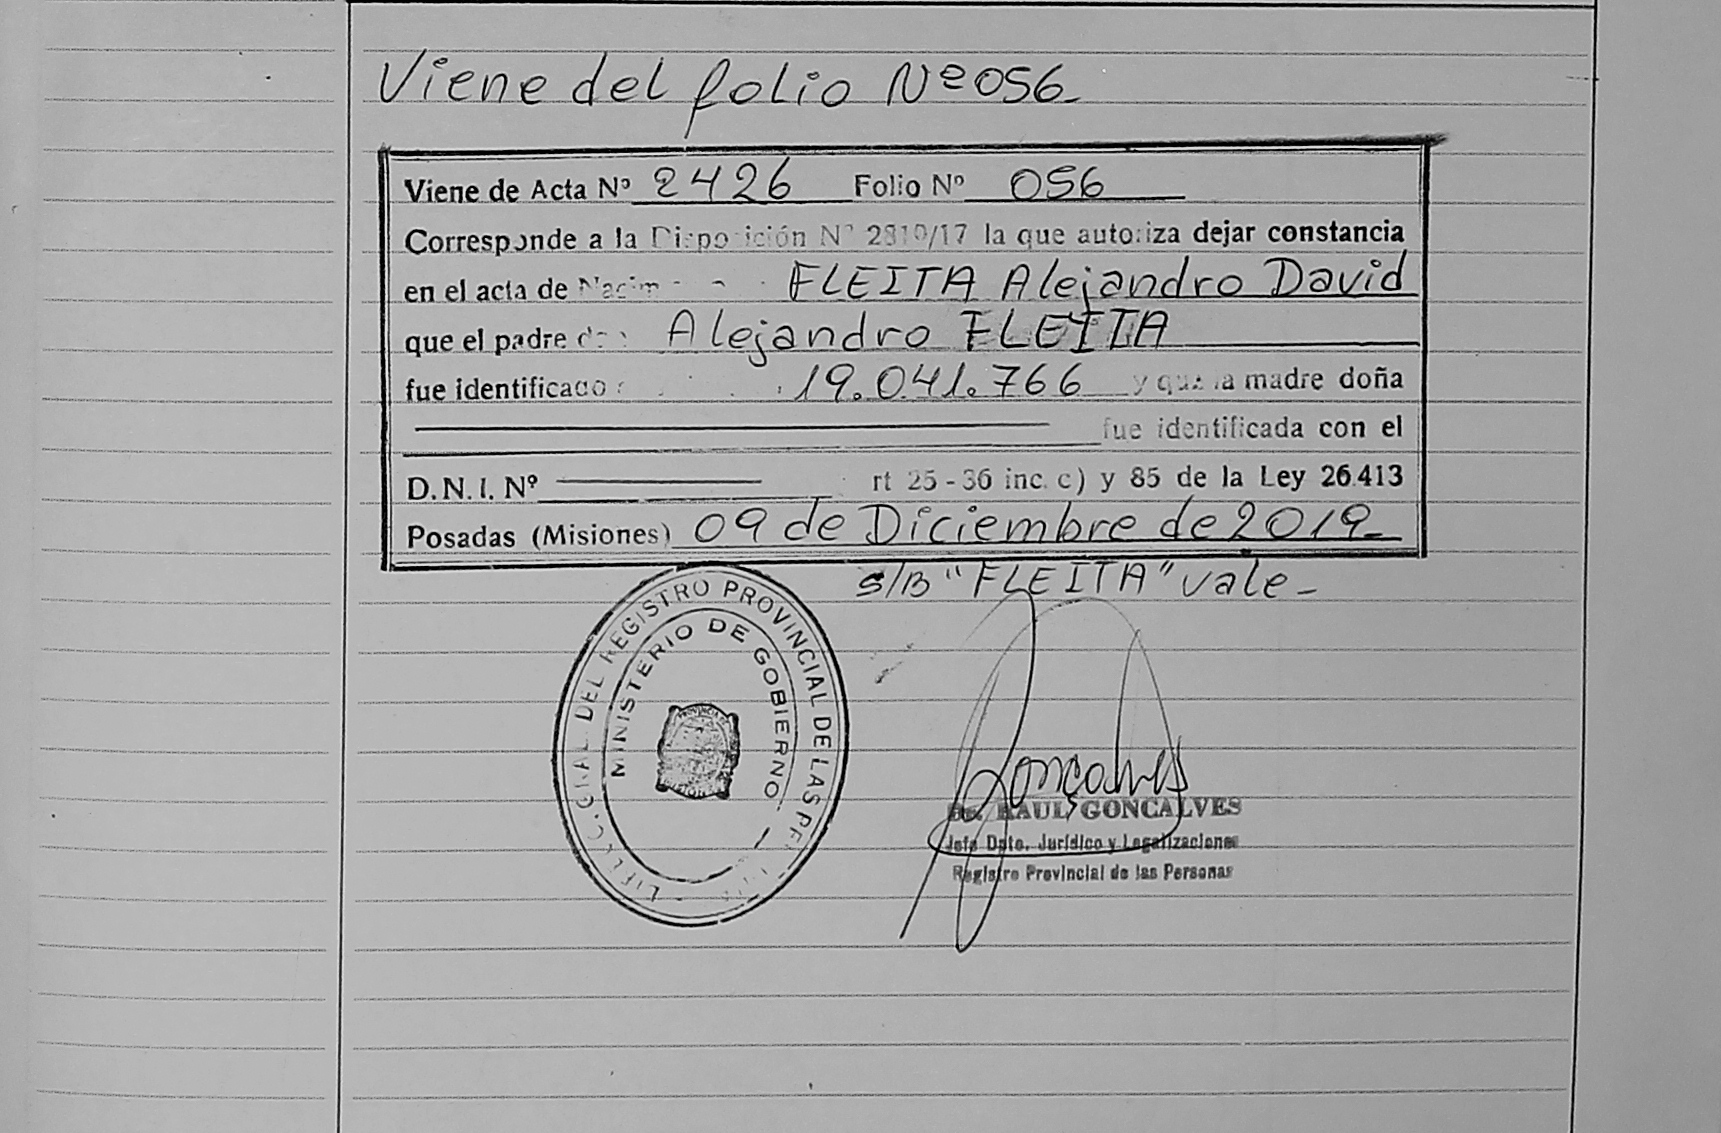 Viene del folio Nº 056-
Viene de Acta Nº 2426 Folio Nº 056
Corresponde a la Disposición Nº 2810/17 la que autoriza dejar constancia
en el acta de Nacim FLEITA Alejandro David
que el padre don Alejandro FLEITA
fue identificado 19.041.766 y que la madre doña
fue identificada con el
D.N.I. Nº rt 25-36 inc. c) y 85 de la Ley 26.413
Posadas (Misiones) 09 de Diciembre de 2019-
s/B "FLEITA" vale-
GRAL. DEL REGISTRO PROVINCIAL DE LAS
MINISTERIO DE GOBIERNO
Gonçalves
RAUL GONCALVES
Jefe Dpto. Jurídico y Legalizaciones
Registro Provincial de las Personas